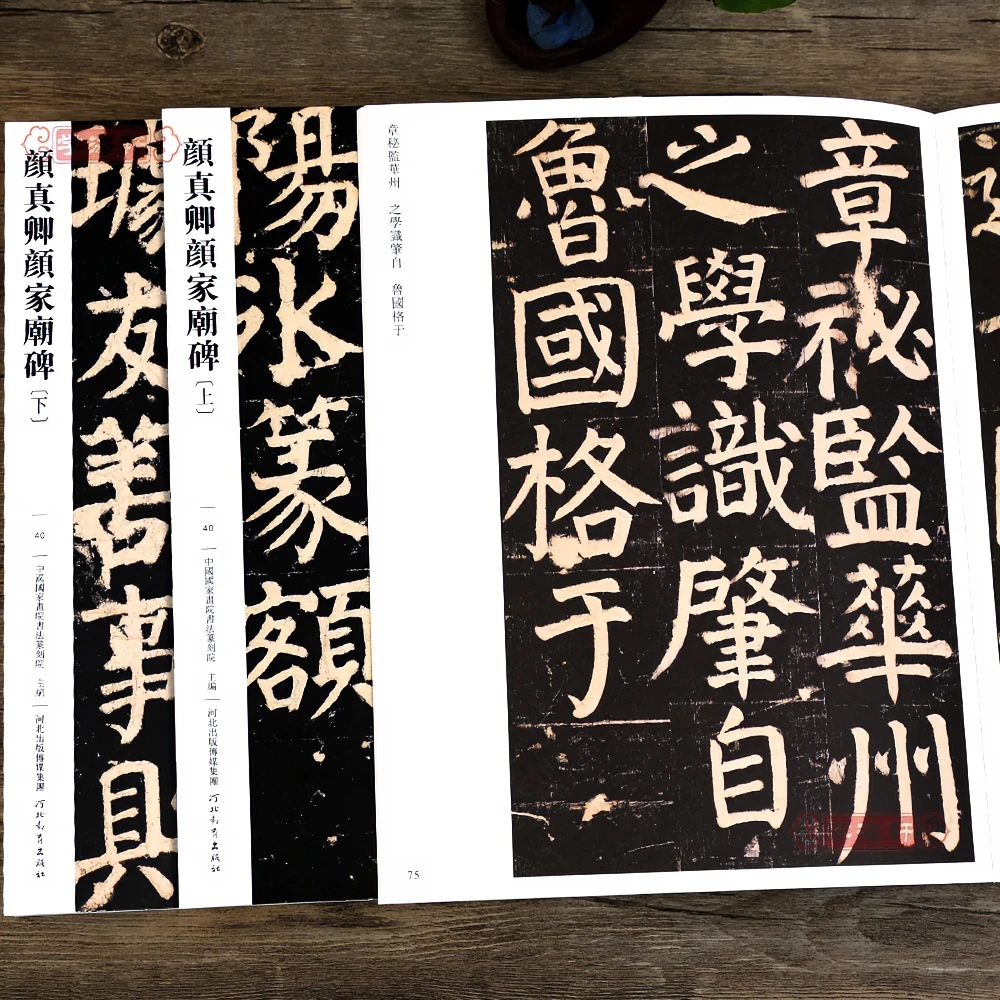 顔真卿顔家廟碑
〔下〕
40
中國國家畫院書法篆刻院 主編
河北出版傳媒集團
河北教育出版社
璩友善事具
顔真卿顔家廟碑
〔上〕
40
中國國家畫院書法篆刻院 主編
河北出版傳媒集團
河北教育出版社
陽冰篆額
章秘監華州
之學識肇自
魯國格于
章秘監華州 之學識肇自 魯國格于
75